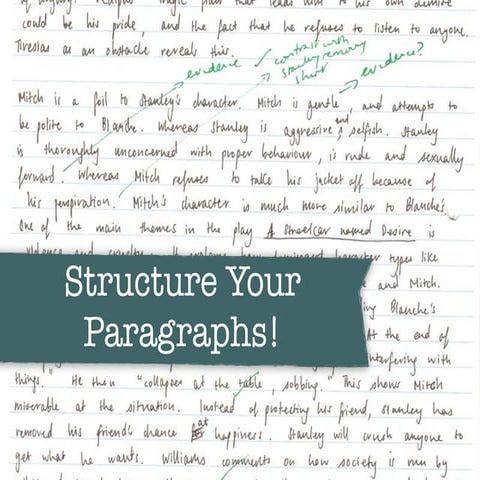 could be his pride, and the fact that he refuses to listen to anyone.
Tiresias as an obstacle reveals this.
evidence ✓ contrast with
Stanley removing
shirt
evidence?
Mitch is a foil to Stanley's character. Mitch is gentle, and attempts to
be polite to Blanche. Whereas Stanley is aggressive and selfish. Stanley
is thoroughly unconcerned with proper behaviour, is rude and sexually
forward. Whereas Mitch refuses to take his jacket off because of
his perspiration. Mitch's character is much more similar to Blanche's.
One of the main themes in the play A Streetcar named Desire is
character types like
and Mitch.
Blanche's
At the end of
interfering with
Structure Your
Paragraphs!
things." He then "collapses at the table, sobbing." This shows Mitch
miserable at the situation. Instead of protecting his friend, Stanley has
removed his friend's chance at happiness. Stanley will crush anyone to
get what he wants. Williams comments on how society is run by